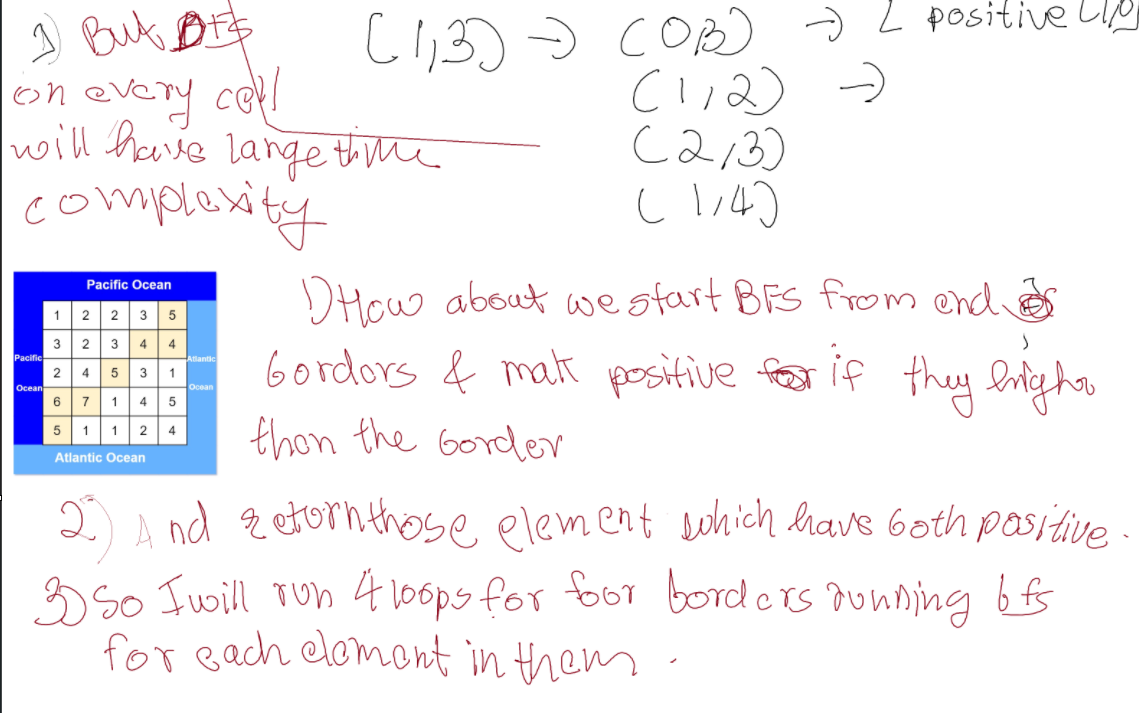 1) But BFS
on every cell
will have large time
complexity
(1,3) → (0,3) → L positive
(1,2) →
(2,3)
(1,4)
Pacific Ocean
1 2 2 3 5
3 2 3 4 4
Pacific Atlantic
2 4 5 3 1
Ocean Ocean
6 7 1 4 5
5 1 1 2 4
Atlantic Ocean
1) How about we start BFS from end
bordors & mak positive if they higher
than the border
2) And return those element which have both positive.
3) So I will run 4 loops for foor borders running bfs
for each element in them.